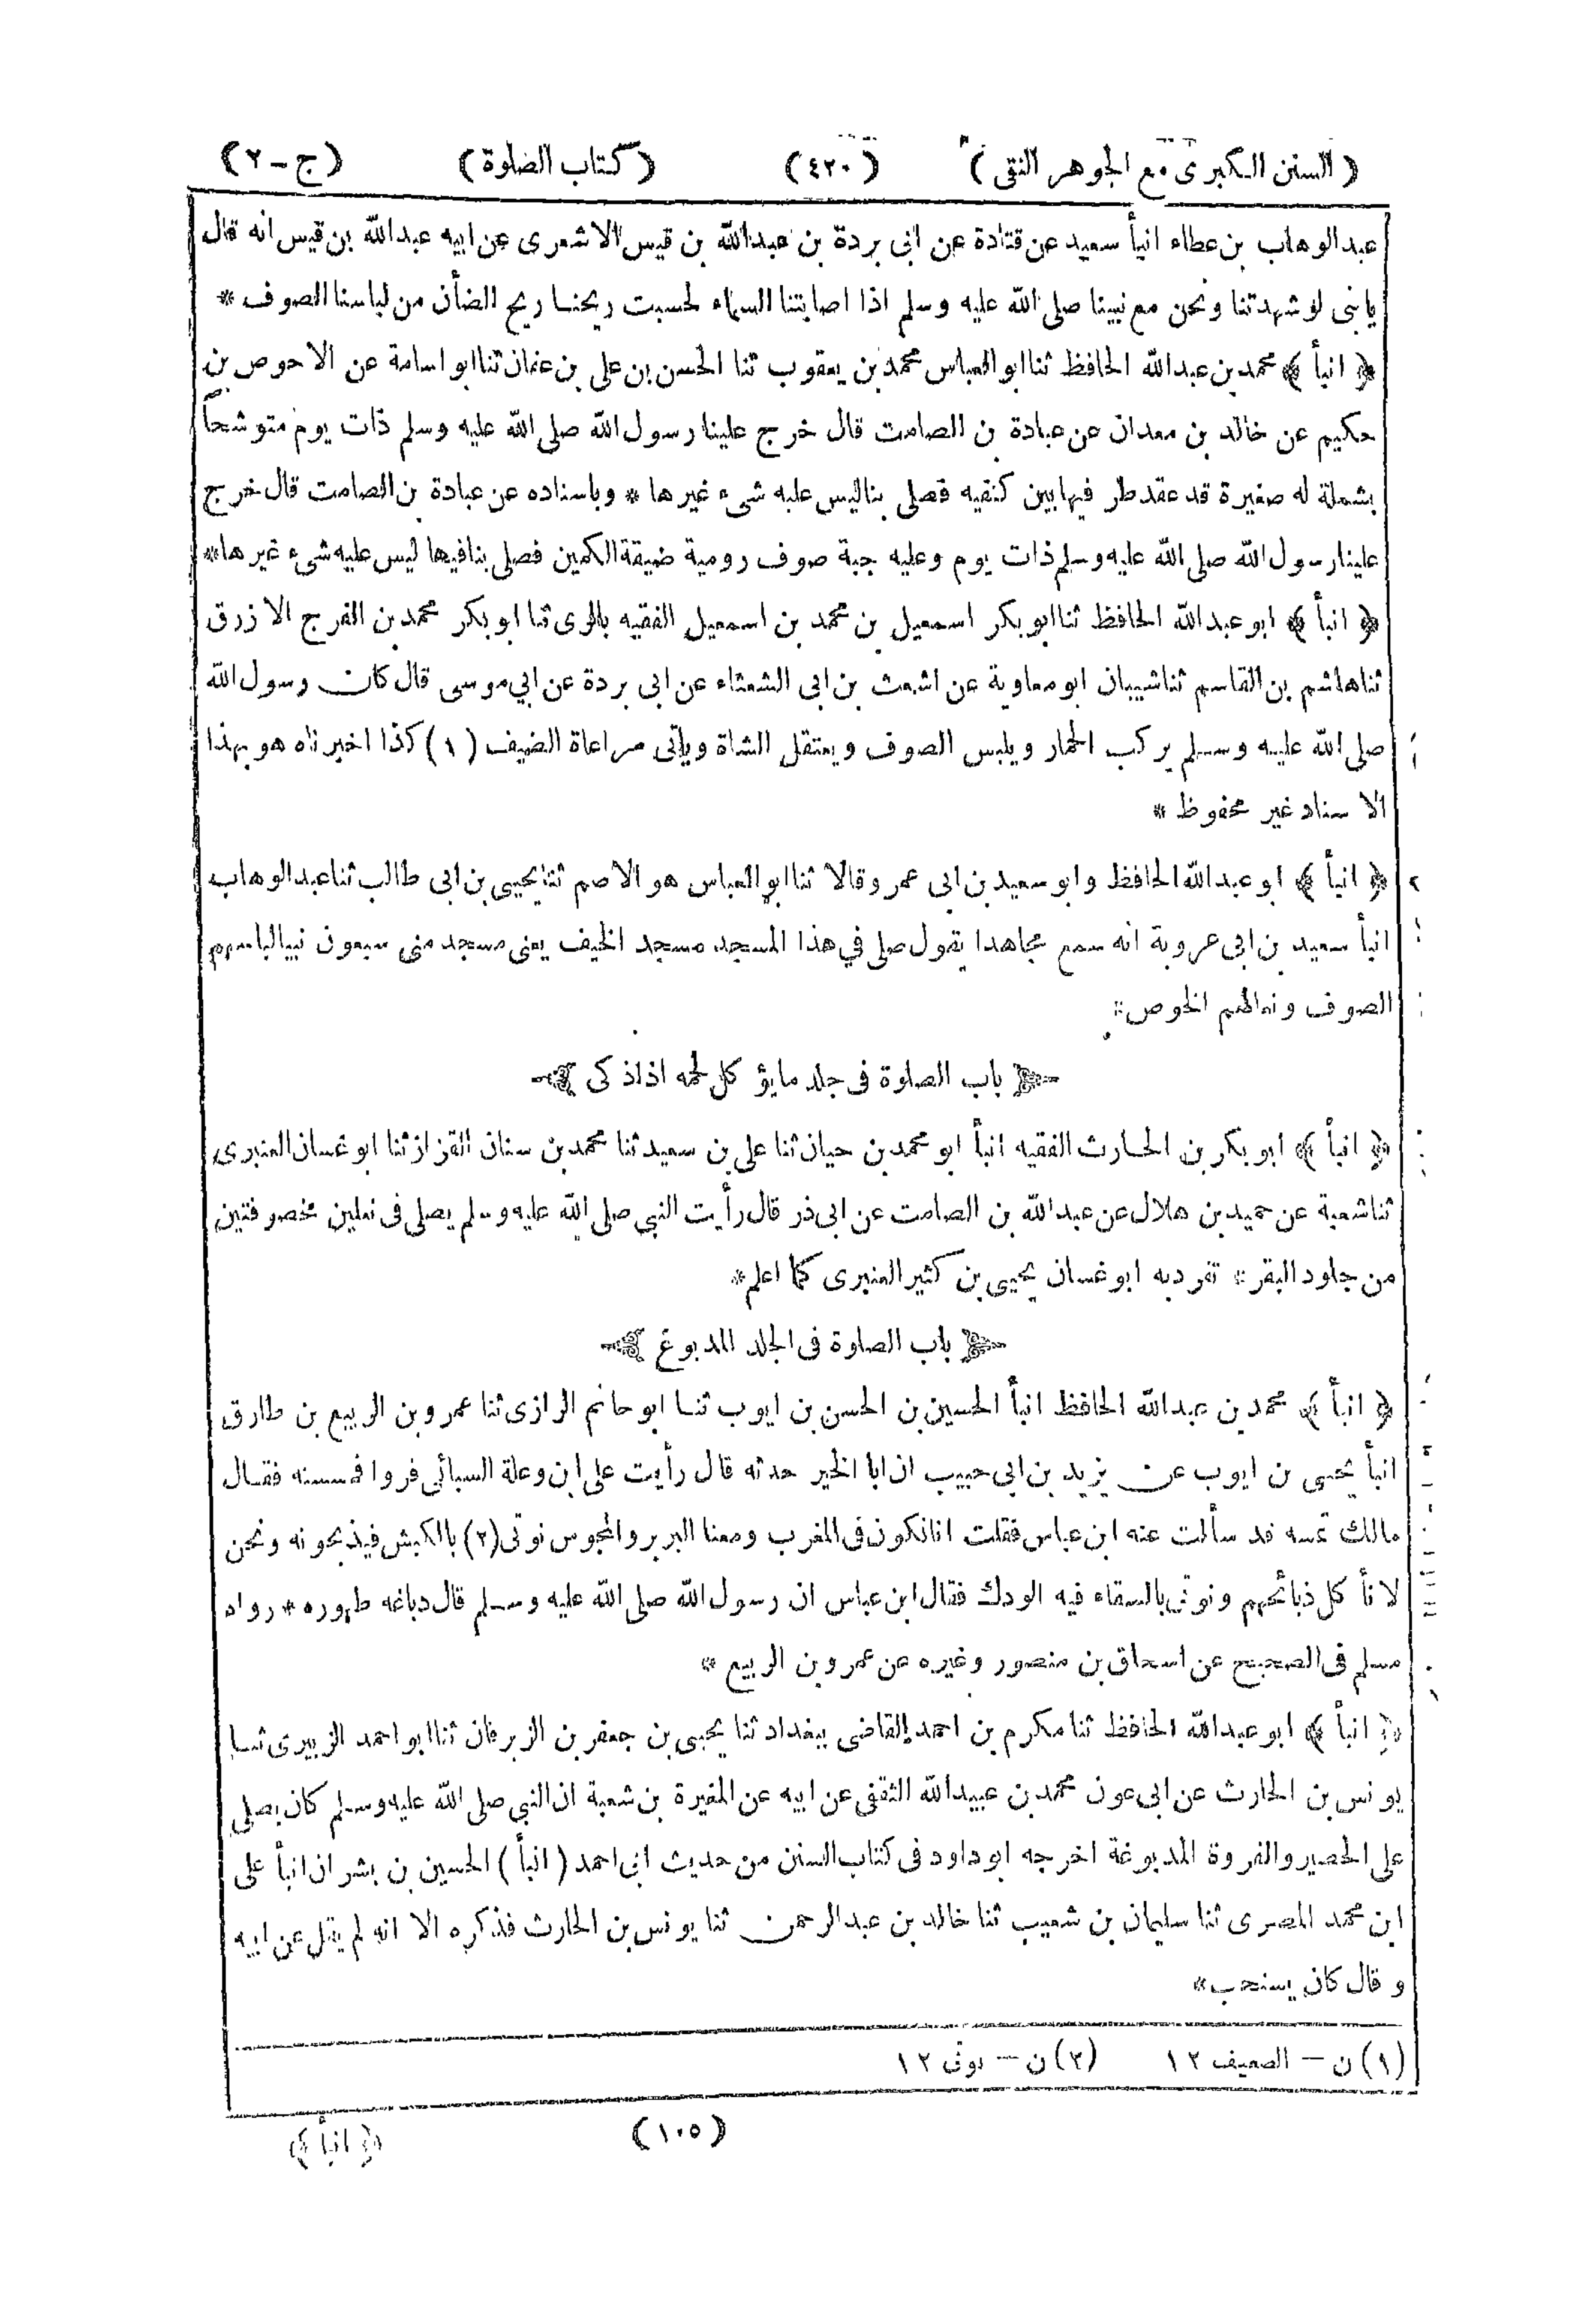 ( السنن الكبرى مع الجوهر النقى ) (٤٢٠) ( كتاب الصلوة ) ( ج - ٢ )
عبد الوهاب بن عطاء انبأ سعيد عن قتادة عن ابى بردة بن عبد الله بن قيس الاشعرى عن ابيه عبد الله بن قيس انه قال
يا بنى لو شهدتنا ونحن مع نبينا صلى الله عليه وسلم اذا اصابتنا السماء لحسبت ريحنا ريح الضأن من لباسنا الصوف *
﴿ انبأ ﴾ محمد بن عبد الله الحافظ ثنا ابو العباس محمد بن يعقوب ثنا الحسن بن على بن عفان ثنا ابو اسامة عن الاحوص بن
حكيم عن خالد بن معدان عن عبادة بن الصامت قال خرج علينا رسول الله صلى الله عليه وسلم ذات يوم متوشحاً
بشملة له صغيرة قد عقد طرفيها بين كتفيه فصلى بنا ليس عليه شىء غيرها * وباسناده عن عبادة بن الصامت قال خرج
علينا رسول الله صلى الله عليه وسلم ذات يوم وعليه جبة صوف رومية ضيقة الكمين فصلى بنا فيها ليس عليه شىء غيرها *
﴿ انبأ ﴾ ابو عبد الله الحافظ ثنا ابو بكر اسمعيل بن محمد بن اسمعيل الفقيه بالرى ثنا ابو بكر محمد بن الفرج الازرق
ثنا هاشم بن القاسم ثنا شيبان ابو معاوية عن اشعث بن ابى الشعثاء عن ابى بردة عن ابي موسى قال كان رسول الله
صلى الله عليه وسلم يركب الحمار ويلبس الصوف ويعتقل الشاة ويأتى مراعاة الضيف (١) كذا اخبرناه هو بهذا
الاسناد غير محفوظ *
﴿ انبأ ﴾ ابو عبد الله الحافظ وابو سعيد بن ابى عمرو قالا ثنا ابو العباس هو الاصم ثنا يحيى بن ابى طالب ثنا عبد الوهاب
انبأ سعيد بن ابى عروبة انه سمع مجاهدا يقول صلى في هذا المسجد مسجد الخيف يعنى مسجد منى سبعون نبيا لباسهم
الصوف ونعالهم الخوص *
باب الصلوة فى جلد ما يؤكل لحمه اذا ذكى
﴿ انبأ ﴾ ابو بكر بن الحارث الفقيه انبأ ابو محمد بن حيان ثنا على بن سعيد ثنا محمد بن سنان القزاز ثنا ابو غسان العنبرى
ثنا شعبة عن حميد بن هلال عن عبد الله بن الصامت عن ابى ذر قال رأيت النبي صلى الله عليه وسلم يصلى فى نعلين مخصوفتين
من جلود البقر * تفرد به ابو غسان يحيى بن كثير العنبرى كما اعلم *
باب الصلوة فى الجلد المدبوغ
﴿ انبأ ﴾ محمد بن عبد الله الحافظ انبأ الحسين بن الحسن بن ايوب ثنا ابو حاتم الرازى ثنا عمرو بن الربيع بن طارق
انبأ يحيى بن ايوب عن يزيد بن ابى حبيب ان ابا الخير حدثه قال رأيت على ابن وعلة السبائى فروا فمسسته فقال
مالك تمسه قد سألت عنه ابن عباس فقلت انا نكون فى المغرب ومعنا البربر والمجوس نوتى (٢) بالكبش فيذبحونه ونحن
لا نأكل ذبائحهم ونوتى بالسقاء فيه الودك فقال ابن عباس ان رسول الله صلى الله عليه وسلم قال دباغه طهوره * رواه
مسلم فى الصحيح عن اسحاق بن منصور وغيره عن عمرو بن الربيع *
﴿ انبأ ﴾ ابو عبد الله الحافظ ثنا مكرم بن احمد القاضى ببغداد ثنا يحيى بن جعفر بن الزبرقان ثنا ابو احمد الزبيرى ثنا
يونس بن الحارث عن ابى عون محمد بن عبيد الله الثقفى عن ابيه عن المغيرة بن شعبة ان النبي صلى الله عليه وسلم كان يصلى
على الحصير والفروة المدبوغة اخرجه ابو داود فى كتاب السنن من حديث ابى احمد ( انبأ ) الحسين بن بشران انبأ على
ابن محمد المصرى ثنا سليمان بن شعيب ثنا خالد بن عبد الرحمن ثنا يونس بن الحارث فذكره الا انه لم يقل عن ابيه
وقال كان يستحب *
(١) ن – الصعيف ١٢ (٢) ن – يوتى ١٢
(١٠٥) ﴿ انبأ ﴾